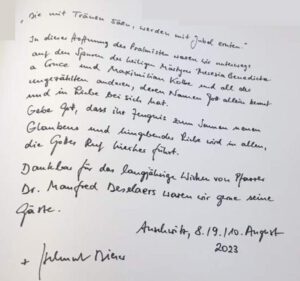 „Die mit Tränen säen, werden mit Jubel ernten“
In dieser Hoffnung des Psalmisten waren wir unterwegs
auf den Spuren der heiligen Märtyrer Theresia Benedicta
a Cruce und Maximilian Kolbe und all der
ungezählten anderen, deren Namen Gott allein kennt
und in Liebe bei sich hat.
Gebe Gott, dass ihr Zeugnis zum Samen neuen
Glaubens und hingebender Liebe wird in allen,
die Gottes Ruf hierher führt.
Dankbar für das langjährige Wirken von Pfarrer
Dr. Manfred Deselaers waren wir gerne seine
Gäste.
Auschwitz, 8./9./10. August
2023
+ Helmut